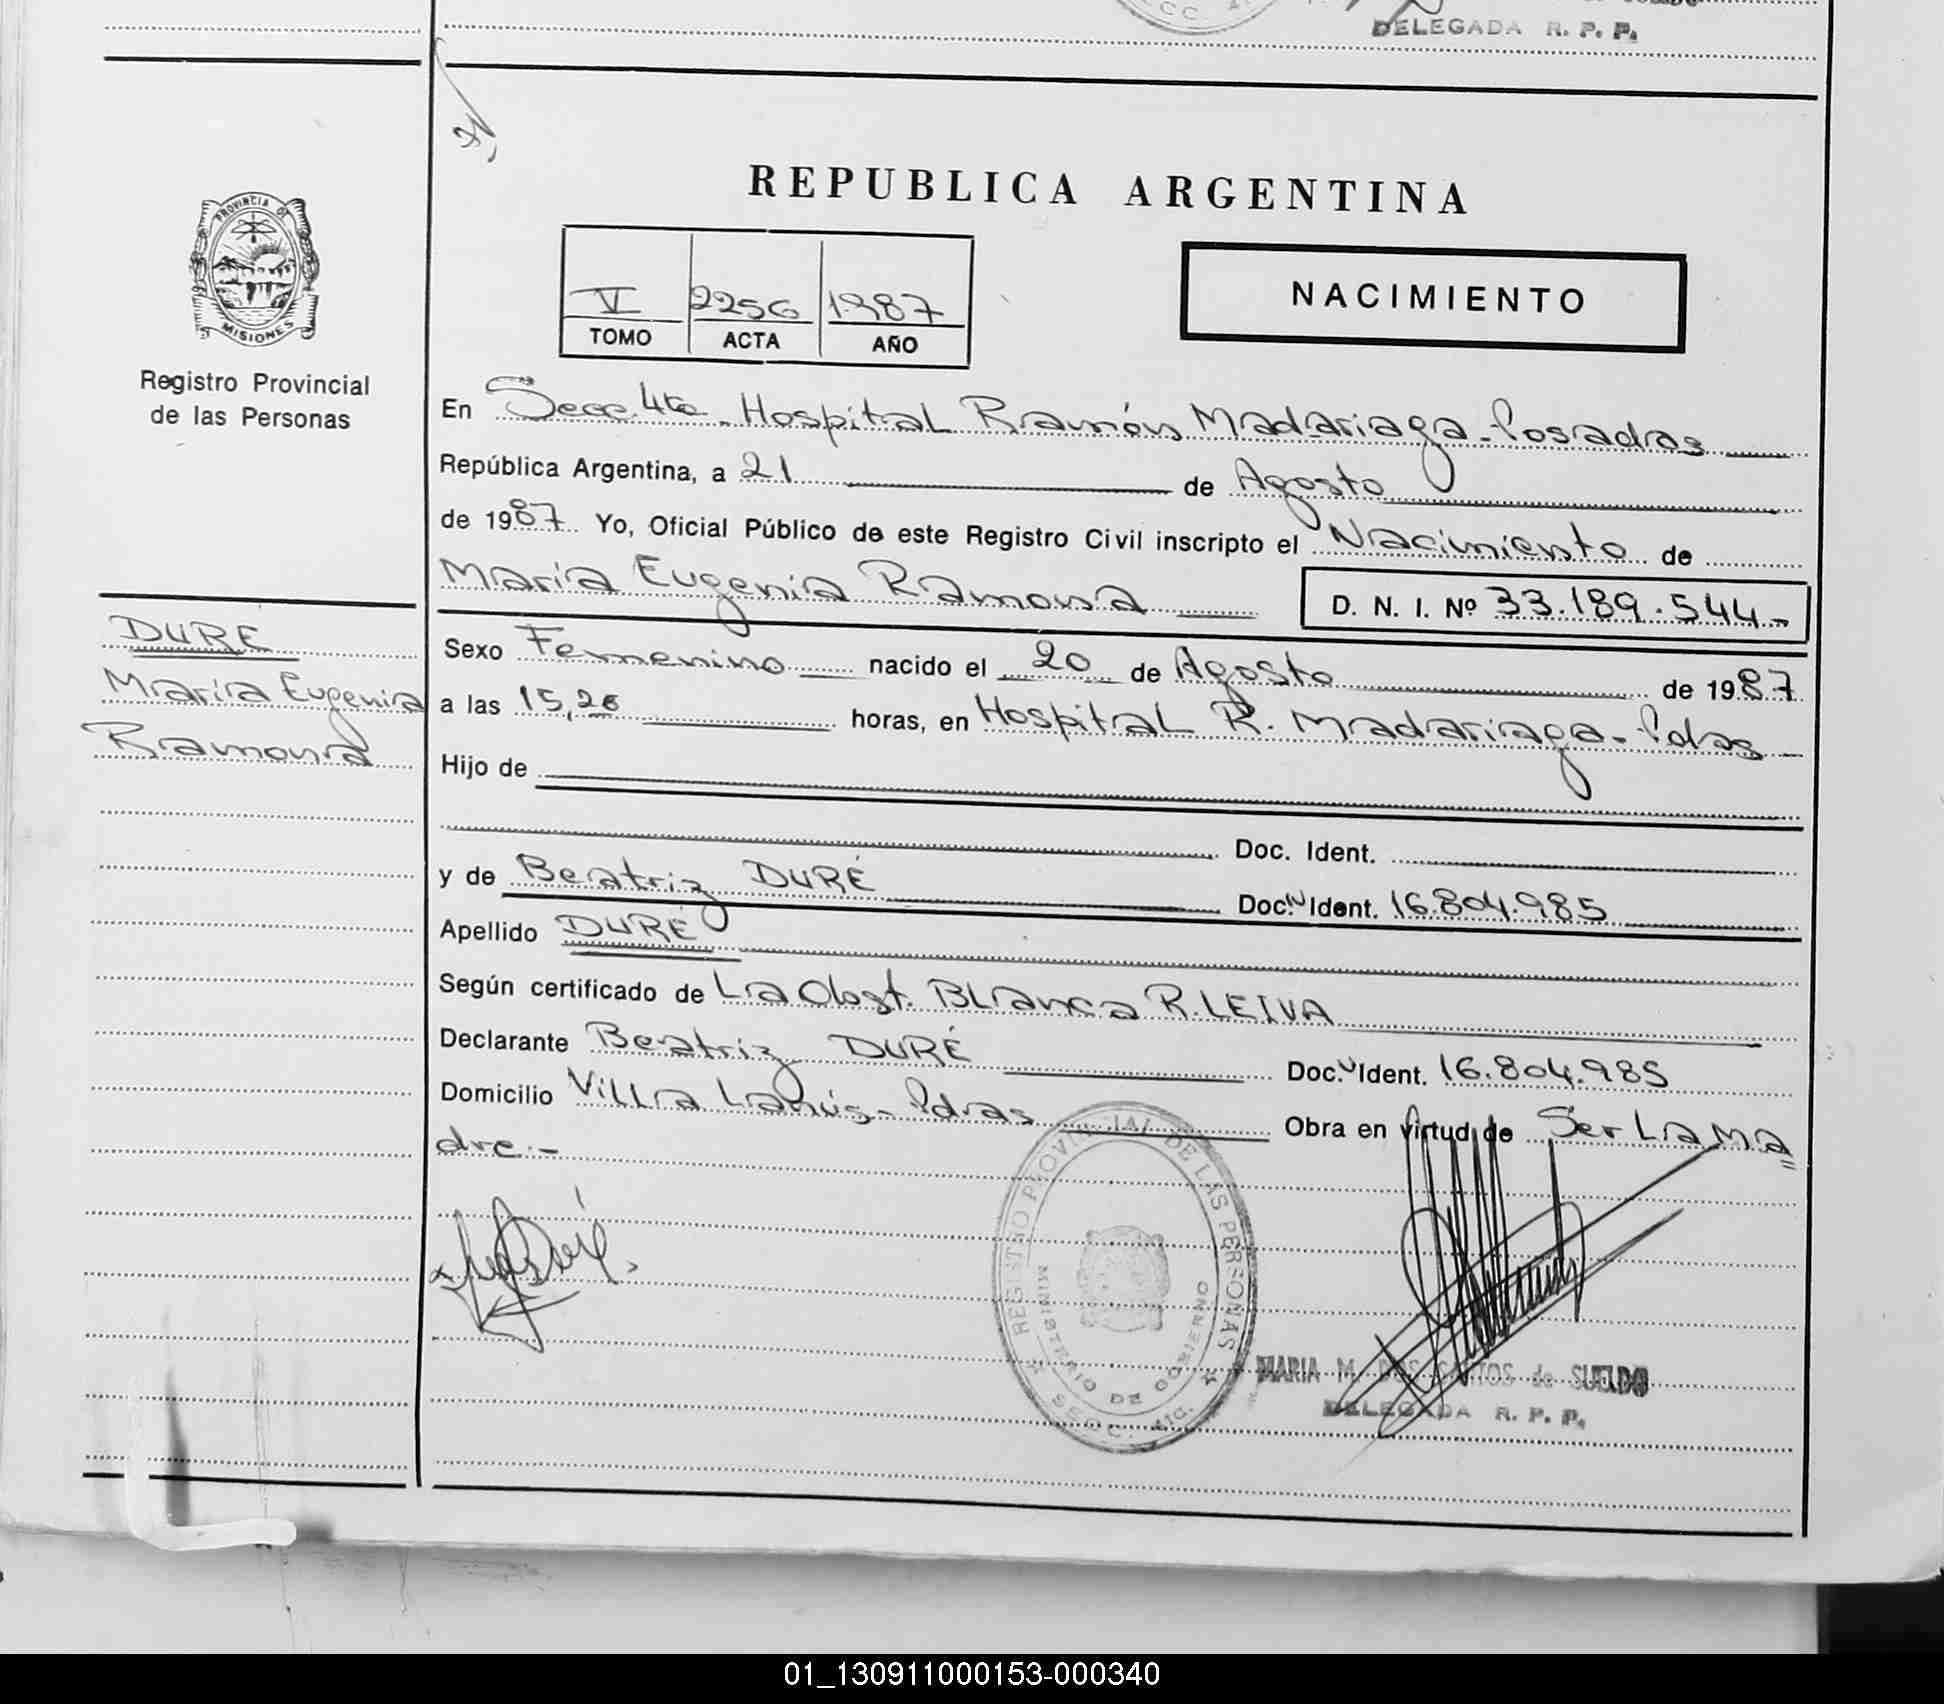 DELEGADA R. P. P.
PROVINCIA DE
MISIONES
Registro Provincial
de las Personas
DURE
María Eugenia
Ramona
REPUBLICA ARGENTINA
V 2256 1987
TOMO ACTA AÑO
NACIMIENTO
En Secc. 4ta. Hospital Ramón Madariaga - Posadas
República Argentina, a 21 de Agosto
de 1987 Yo, Oficial Público de este Registro Civil inscripto el Nacimiento de
María Eugenia Ramona D. N. I. Nº 33.189.544-
Sexo Femenino nacido el 20 de Agosto de 1987
a las 15,26 horas, en Hospital R. Madariaga - Pdas
Hijo de
Doc. Ident.
y de Beatriz DURÉ Doc. Ident. 16.804.985
Apellido DURÉ
Según certificado de La Obst. Blanca R. LEIVA
Declarante Beatriz DURÉ Doc. Ident. 16.804.985
Domicilio Villa Lanús - Pdas Obra en virtud de Ser La Ma
dre.-
REGISTRO PROVINCIAL DE LAS PERSONAS
MINISTERIO DE GOBIERNO
MARIA M. DOS SANTOS de SUELDO
DELEGADA R. P. P.
01_130911000153-000340